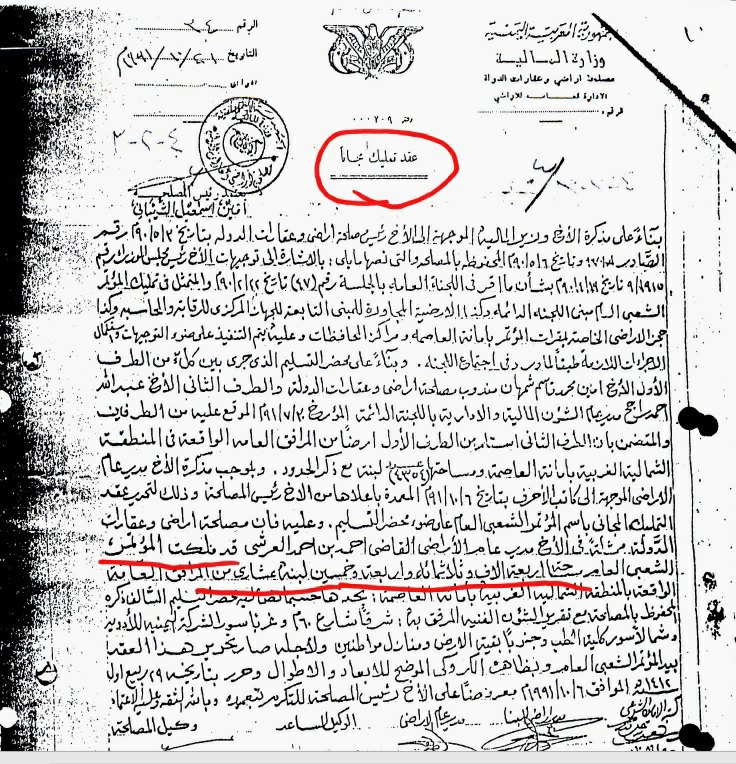 الجمهورية اليمنية
وزارة المالية
مصلحة اراضي وعقارات الدولة
الادارة العامة للاراضي
الرقم
التاريخ
عقد تمليك مجاناً
بناءً على مذكرة الأخ وزير المالية الموجهة الى الأخ رئيس مصلحة اراضي وعقارات الدولة بتاريخ
المحفوظ بالمصلحة والتي نصها مايلي : بالاشارة الى توجيهات الأخ رئيس مجلس الوزراء رقم
بشأن ما اقر في اللجنة العامة بالجلسة رقم (٦٧) تاريخ والمتمثل في تمليك المؤتمر
الشعبي العام مبنى اللجنة الدائمة وكذا الارضية المجاورة للمبنى التابعة للجهاز المركزي للرقابة والمحاسبة وكذا
حجز الاراضي الخاصة بمقرات المؤتمر بامانة العاصمة ومراكز المحافظات وعليه يتم التنفيذ على ضوء التوجيهات
الاجراءات اللازمة طبقاً لما ورد في اجتماع اللجنة . وبناءً على محضر التسليم الذي جرى بين كلاً من الطرف
الأول الأخ امين محمد قاسم شمهان مندوب مصلحة اراضي وعقارات الدولة والطرف الثاني الأخ عبدالله
احمد راجح مدير عام الشئون المالية والادارية باللجنة الدائمة المؤرخ ٩١/٧/٢م الموقع عليه من الطرفين
والمتضمن بان الطرف الثاني استلم من الطرف الأول ارضاً من المرافق العامة الواقعة في المنطقة
الشمالية الغربية بامانة العاصمة ومساحة (٤٣٥٤) لبنة مع ذكر الحدود . وبموجب مذكرة الأخ مدير عام
الاراضي الموجهة الى كاتب الأحرف بتاريخ ٩١/١٠/٦م المعمدة باعلاها من الأخ رئيس المصلحة وذلك لتحرير عقد
التمليك المجاني باسم المؤتمر الشعبي العام على ضوء محضر التسليم . وعليه فان مصلحة اراضي وعقارات
الدولة ممثلة في الأخ مدير عام الأراضي القاضي احمد بن احمد العرشي قد ملكت المؤتمر
الشعبي العام اربعة الاف وثلاثمائة واربعة وخمسين لبنة عشاري من المرافق العامة
الواقعة بالمنطقة الشمالية الغربية بامانة العاصمة : يحدها حسبما محضر التسليم السالف ذكره
المحفوظ بالمصلحة مع تقرير الشئون الفنية المرفق به : شرقاً شارع ٦٠م وغرباً سور الشركة اليمنية للأدوية
وشمالاً سور كلية الطب وجنوباً بقية الارض ومنازل مواطنين ولأجله صار تحرير هذا العقد
بيد المؤتمر الشعبي العام وبظاهره الكروكي الموضح للابعاد والاطوال وحرر بتاريخه ٢٩ ربيع اول
١٤١٢هـ الموافق ١٩٩١/١٠/٦م معروضاً على الأخ رئيس المصلحة للتكرم بتعميده وبالله الثقة
مدير عام الاراضي الوكيل المساعد وكيل المصلحة